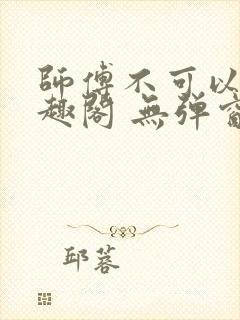 師傅不可以
趣閣 無彈窗
邱蓉